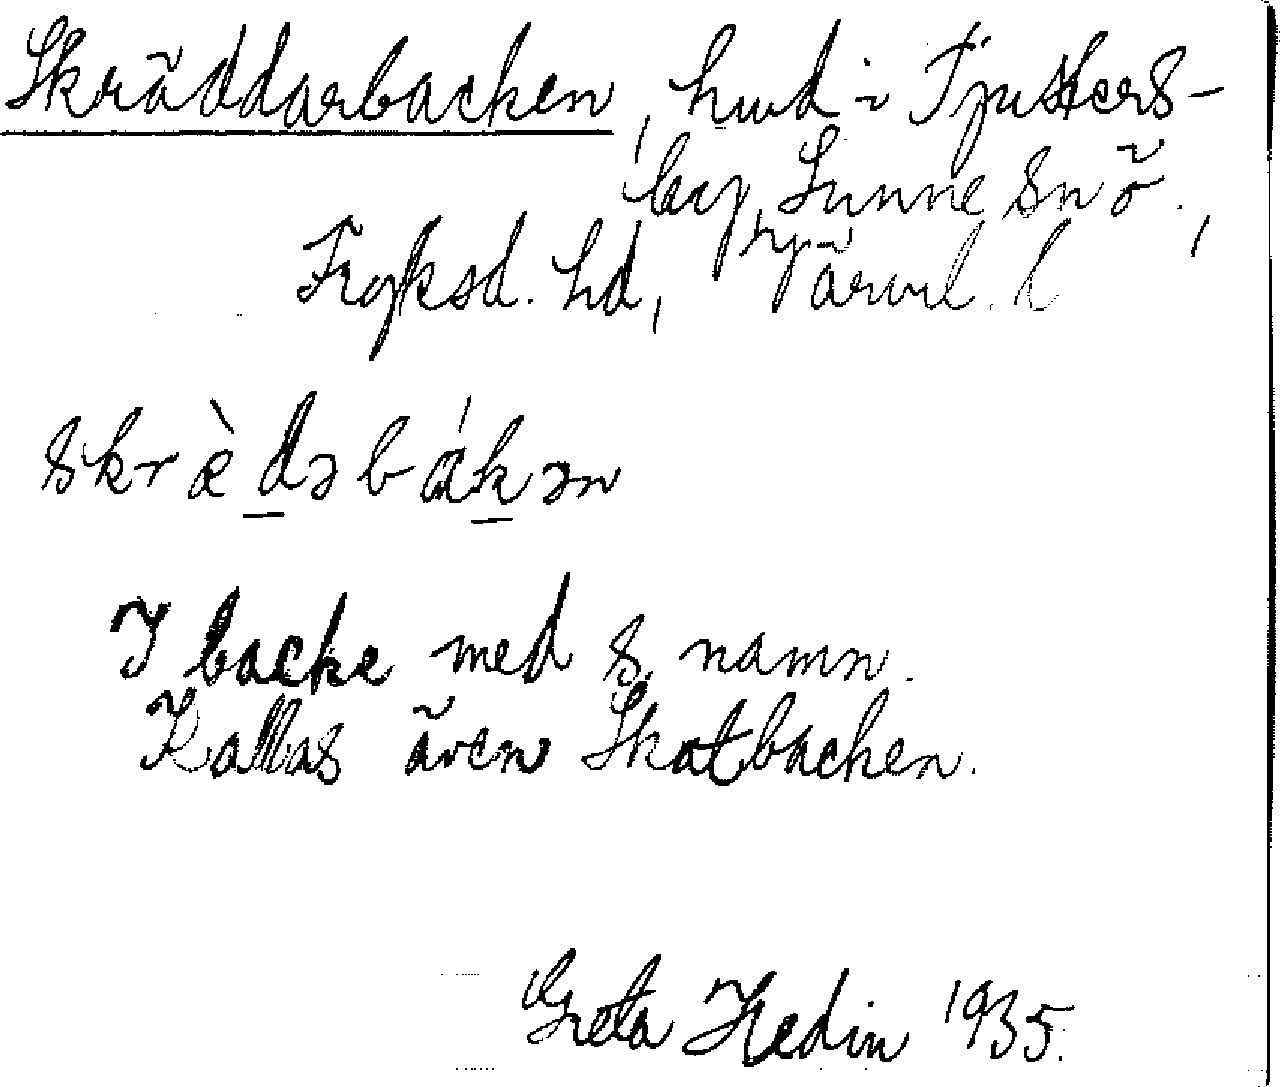 Skräddarbacken, hmd i Tjusters-
by, Sunne sn ö.,
Fryksd. hd, Värml. l
skrædəbakən
I backe med s. namn.
Kallas även Skatbacken.
Greta Hedin 1935.